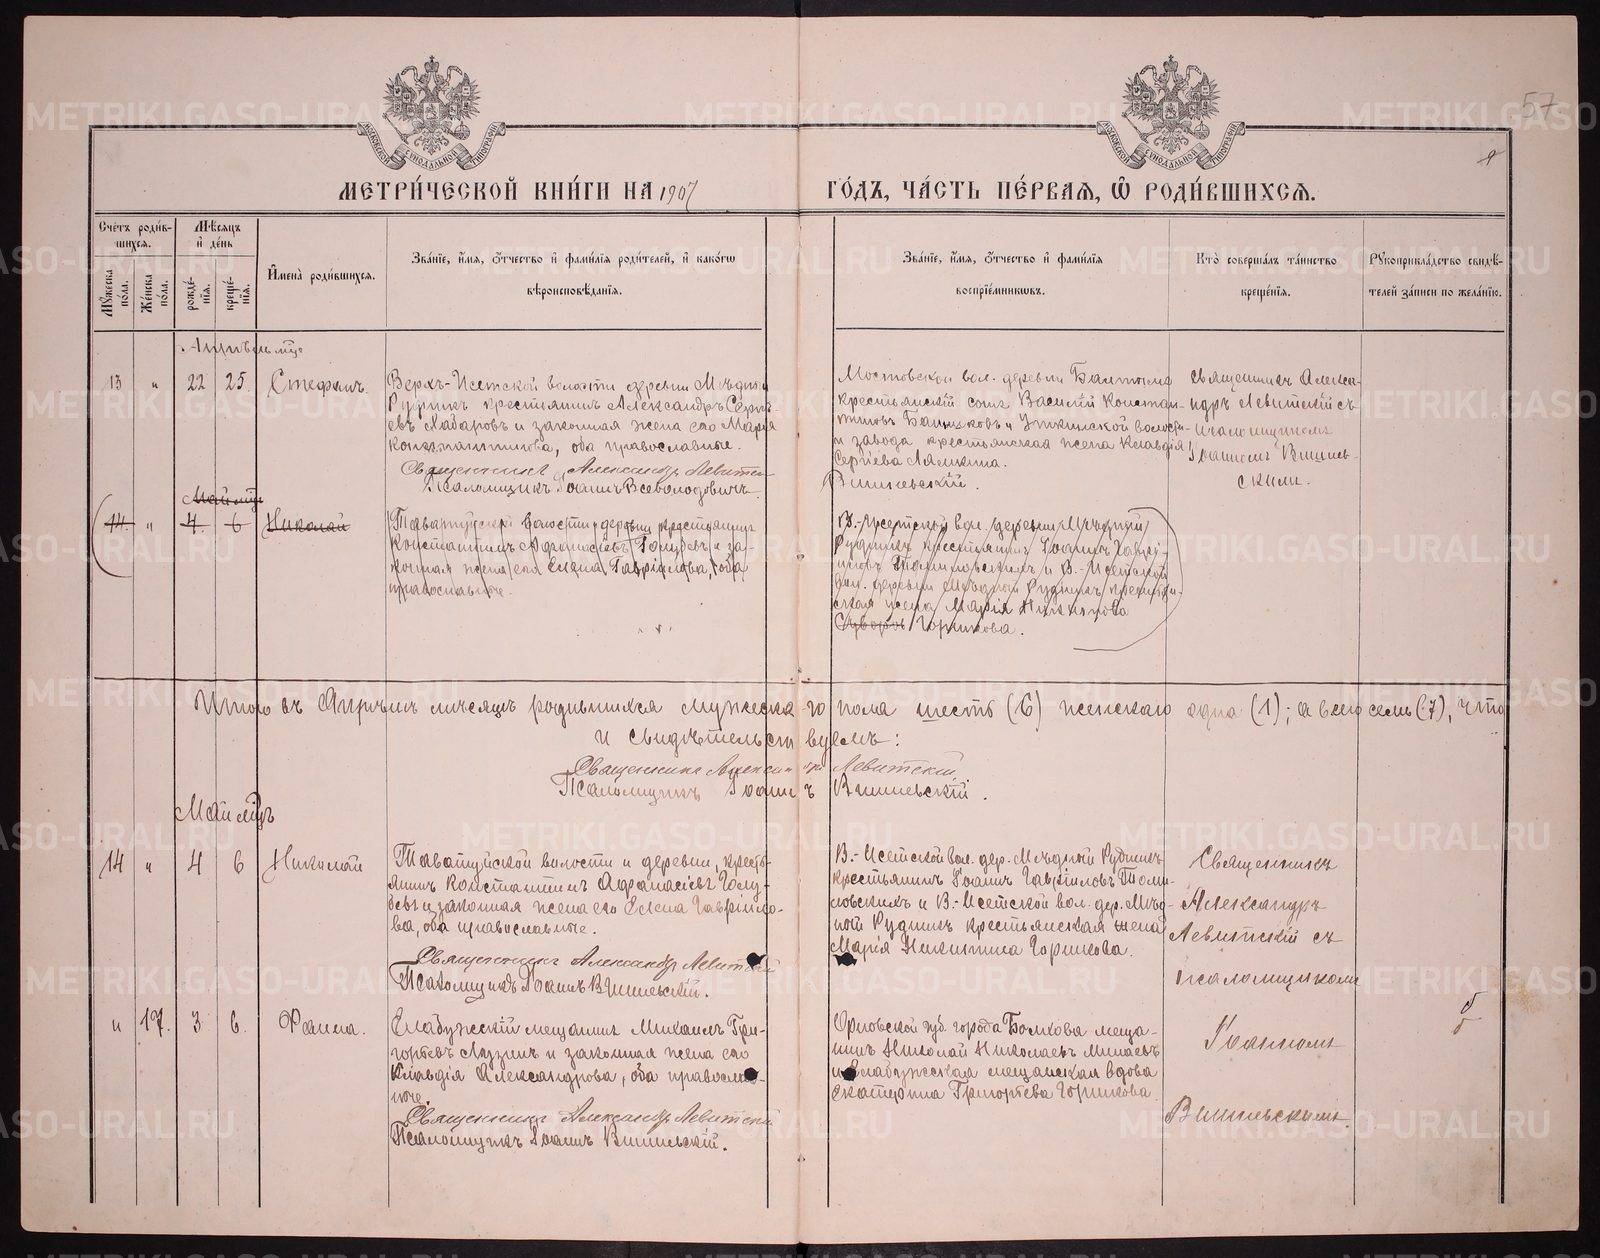 57
МЕТРИ́ЧЕСКОЙ КНИ́ГИ НА 1907 ГО́ДЪ, ЧА́СТЬ ПЕ́РВАЯ, Ѡ РОДИ́ВШИХСЯ.
Счётъ роди́в-
шихся.
Мꙋ́жеска по́ла.
Же́нска по́ла.
Мѣ́сяцъ и́ де́нь
рожде́нїя.
креще́нїя.
И҆мена̀ роди́вшихся.
Зва́нїе, и҆́мя, ѻ҆́тчество и҆ фами́лїя роди́телей, и҆ како́гѡ
вѣроисповѣ́данїя.
Зва́нїе, и҆́мя, ѻ҆́тчество и҆ фами́лїя
воспрїе́мникѡвъ.
Кто̀ соверша́лъ та́инство
креще́нїя.
Рꙋкоприкла́дство свидѣ́-
телей за́писи по жела́нїю.
Апрѣль мцъ
13 " 22 25. Стефанъ.
Верхъ-Исетской волости деревни Мѣдный
Рудникъ крестьянинъ Александръ Сергі-
евъ Хабаровъ и законная жена его Марія
Константинова, оба православные.
Священникъ Александръ Левитскій
Псаломщикъ Іоаннъ Всеволодовичъ
Мостовской вол. деревни Балтыма
крестьянскій сынъ Василій Констан-
тиновъ и Уткинской волости
и завода крестьянская жена Клавдія
Сергіева Лямкина.
Вишневскій.
Священникъ Алекса-
ндръ Левитскій съ
псаломщикомъ
Іоанномъ Вишнев-
скимъ.
Май мцъ
14 " 4 6 Николай
Таватуйской волости и деревни крестьянинъ
Константинъ Афанасіевъ Голубевъ и за-
конная жена его Елена Гавріилова, оба
православные.
В.-Исетской вол. деревни Мѣдный
Рудникъ крестьянинъ Іоаннъ Гаврі-
иловъ и В.-Исетской
вол. деревни Мѣдной Рудникъ крестьян-
ская жена Марія Никитина
Горшкова.
Итого въ Апрѣлѣ мѣсяцѣ родившихся мужеска-го пола шесть (6) женскаго одна (1); а всего семь (7), что
и свидѣтельствуемъ:
Священникъ Александръ Левитскій.
Псаломщикъ Іоаннъ Вишневскій.
Май мцъ
14 " 4 6 Николай
Таватуйской волости и деревни, кресть-
янинъ Константинъ Афанасіевъ Голу-
бевъ и законная жена его Елена Гавріило-
ва, оба православные.
Священникъ Александръ Левитскій
Псаломщикъ Іоаннъ Вишневскій.
В.-Исетской вол. дер. Мѣдный Рудникъ
крестьянинъ Іоаннъ Гавріиловъ Томи-
ловскихъ и В.-Исетской вол. дер. Мѣд-
ной Рудникъ крестьянская жена
Марія Никитина Горшкова.
Священникъ
Александръ
Левитскій съ
псаломщикомъ
Іоанномъ
Вишневскимъ.
" 17. 3 6. Фаина.
Елабужскій мещанинъ Михаилъ Гри-
горьевъ Лузинъ и законная жена его
Клавдія Александрова, оба православ-
ные.
Священникъ Александръ Левитскій
Псаломщикъ Іоаннъ Вишневскій.
Орловской губ. города Болхова меща-
нинъ Николай Николаевъ Минаевъ
и Елабужская мещанская вдова
Екатерина Григорьева Горшкова.
METRIKI.GASO-URAL.RU